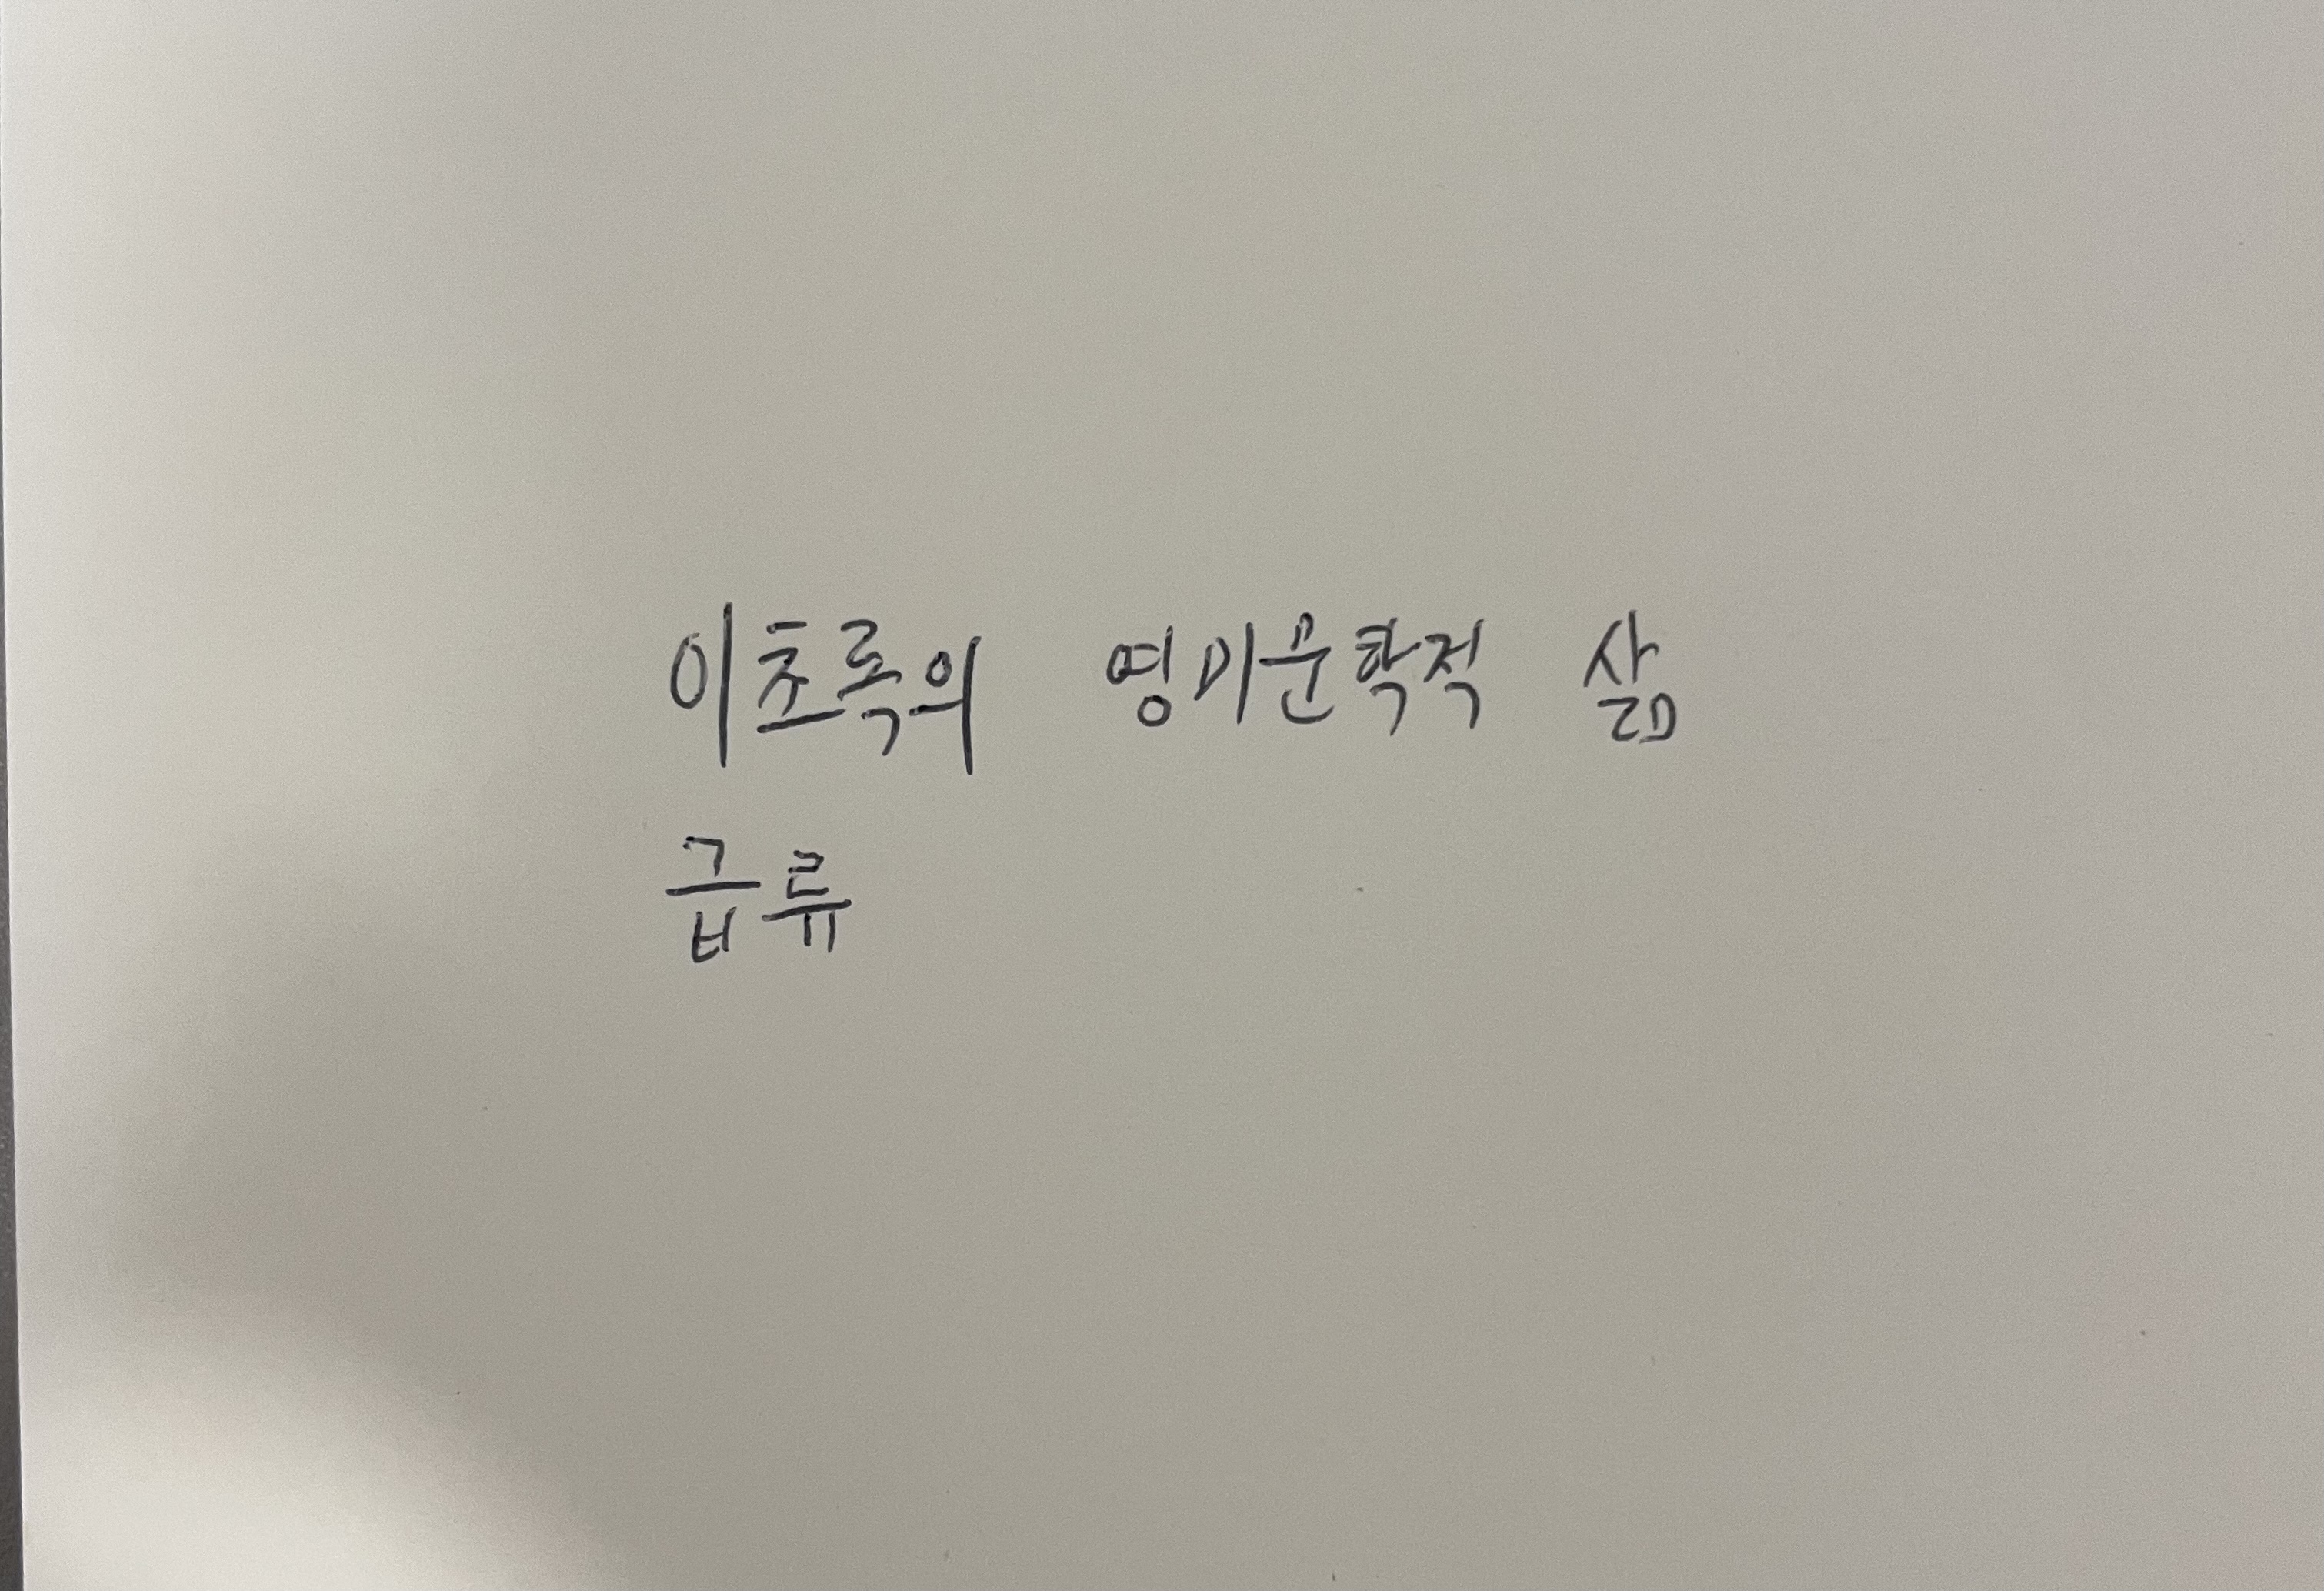 이초록의 영미문학적 삶
급류